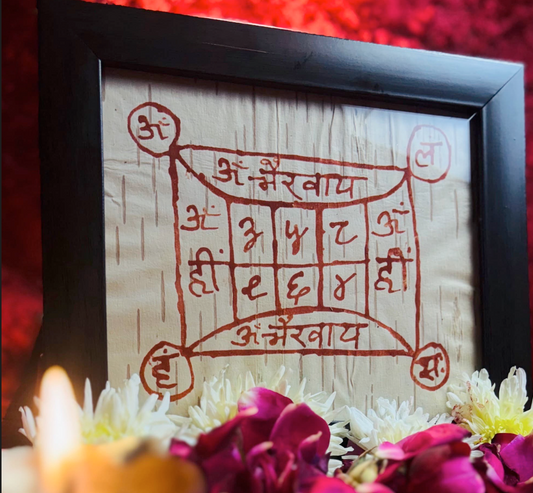 अं लं
अं भैरवाय
अं ३ ५ ८ अं
ह्रीं १ ६ ४ ह्रीं
अं भैरवाय
हं मं